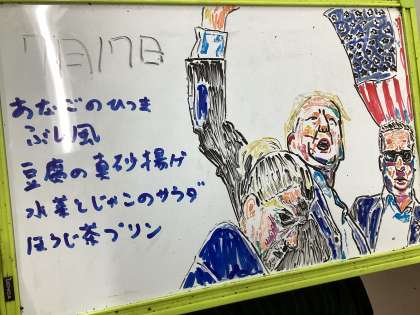 7月17日
あなごのひつま
ぶし風
豆腐の真砂揚げ
水菜とじゃこのサラダ
ほうじ茶プリン